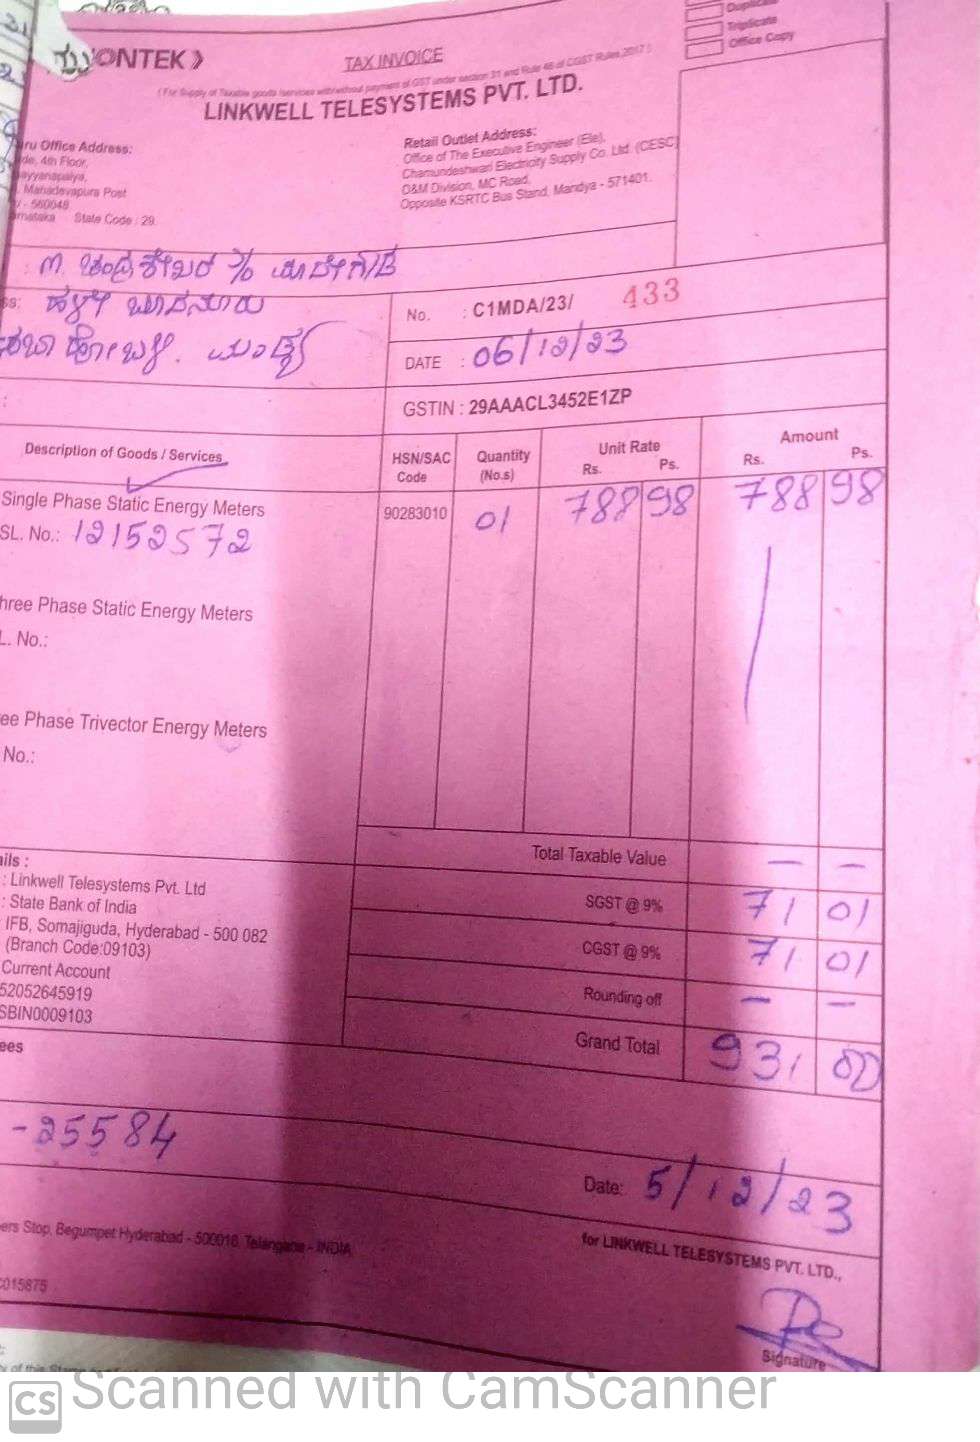 Duplicate
Triplicate
Office Copy
ONTEK
TAX INVOICE
(For Supply of Taxable goods /services with/without payment of GST under section 31 and Rule 46 of CGST Rules 2017)
LINKWELL TELESYSTEMS PVT. LTD.
ru Office Address:
de, 4th Floor,
ayyanapalya,
Mahadevapura Post
- 560048
rnataka State Code : 29
Retail Outlet Address:
Office of The Executive Engineer (Ele),
Chamundeshwari Electricity Supply Co. Ltd. (CESC)
O&M Division, MC Road,
Opposite KSRTC Bus Stand, Mandya - 571401.
ಚಂದ್ರಶೇಖರ
ss:
ಮಂಡ್ಯ
No. : C1MDA/23/ 433
DATE : 06/12/23
GSTIN : 29AAACL3452E1ZP
Description of Goods / Services
HSN/SAC Code
Quantity (No.s)
Unit Rate
Rs. Ps.
Amount
Rs. Ps.
Single Phase Static Energy Meters
90283010 01 788 98 788 98
SL. No.: 12152572
hree Phase Static Energy Meters
L. No.:
ee Phase Trivector Energy Meters
No.:
Total Taxable Value — —
SGST @ 9% 71 01
CGST @ 9% 71 01
Rounding off — —
Grand Total 931 00
ails :
: Linkwell Telesystems Pvt. Ltd
: State Bank of India
IFB, Somajiguda, Hyderabad - 500 082
(Branch Code:09103)
Current Account
52052645919
SBIN0009103
ees
-25584
Date: 5/12/23
ers Stop, Begumpet Hyderabad - 500016, Telangana - INDIA
for LINKWELL TELESYSTEMS PVT. LTD.,
015875
Signature
CS Scanned with CamScanner